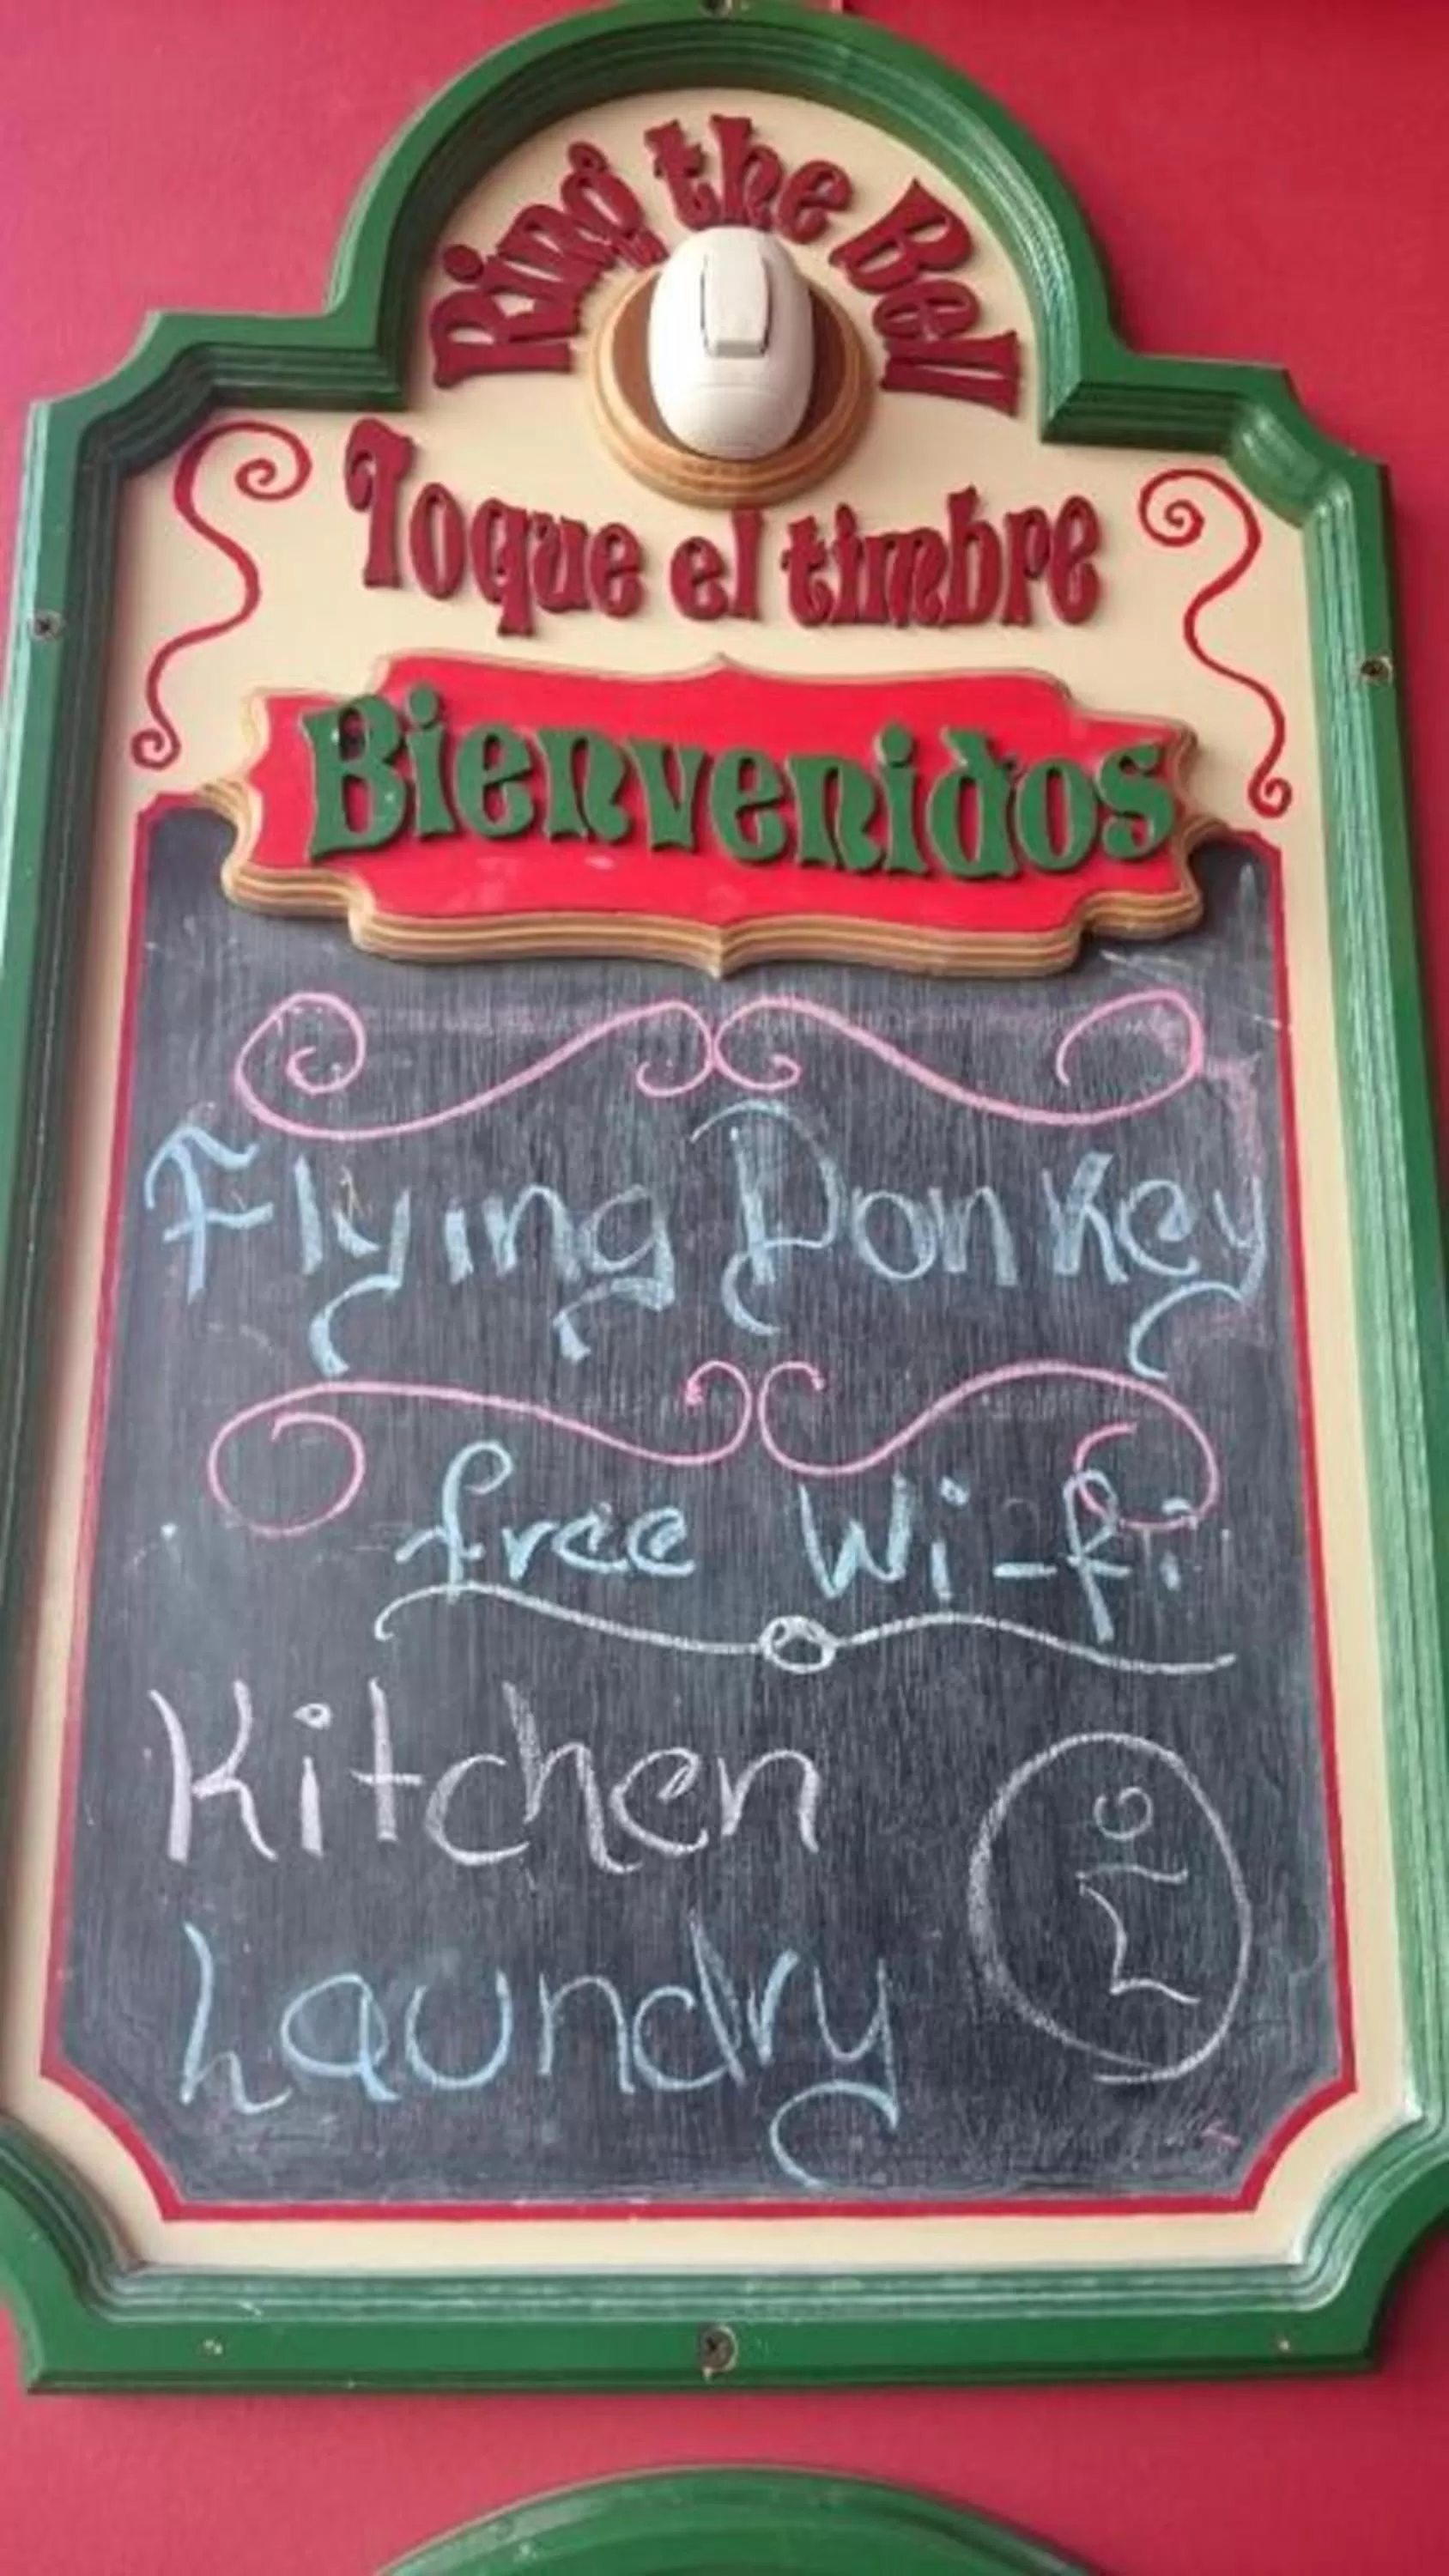 Ring the Bell
Toque el timbre
Bienvenidos
Flying Donkey
free Wi-fi
Kitchen
Laundry